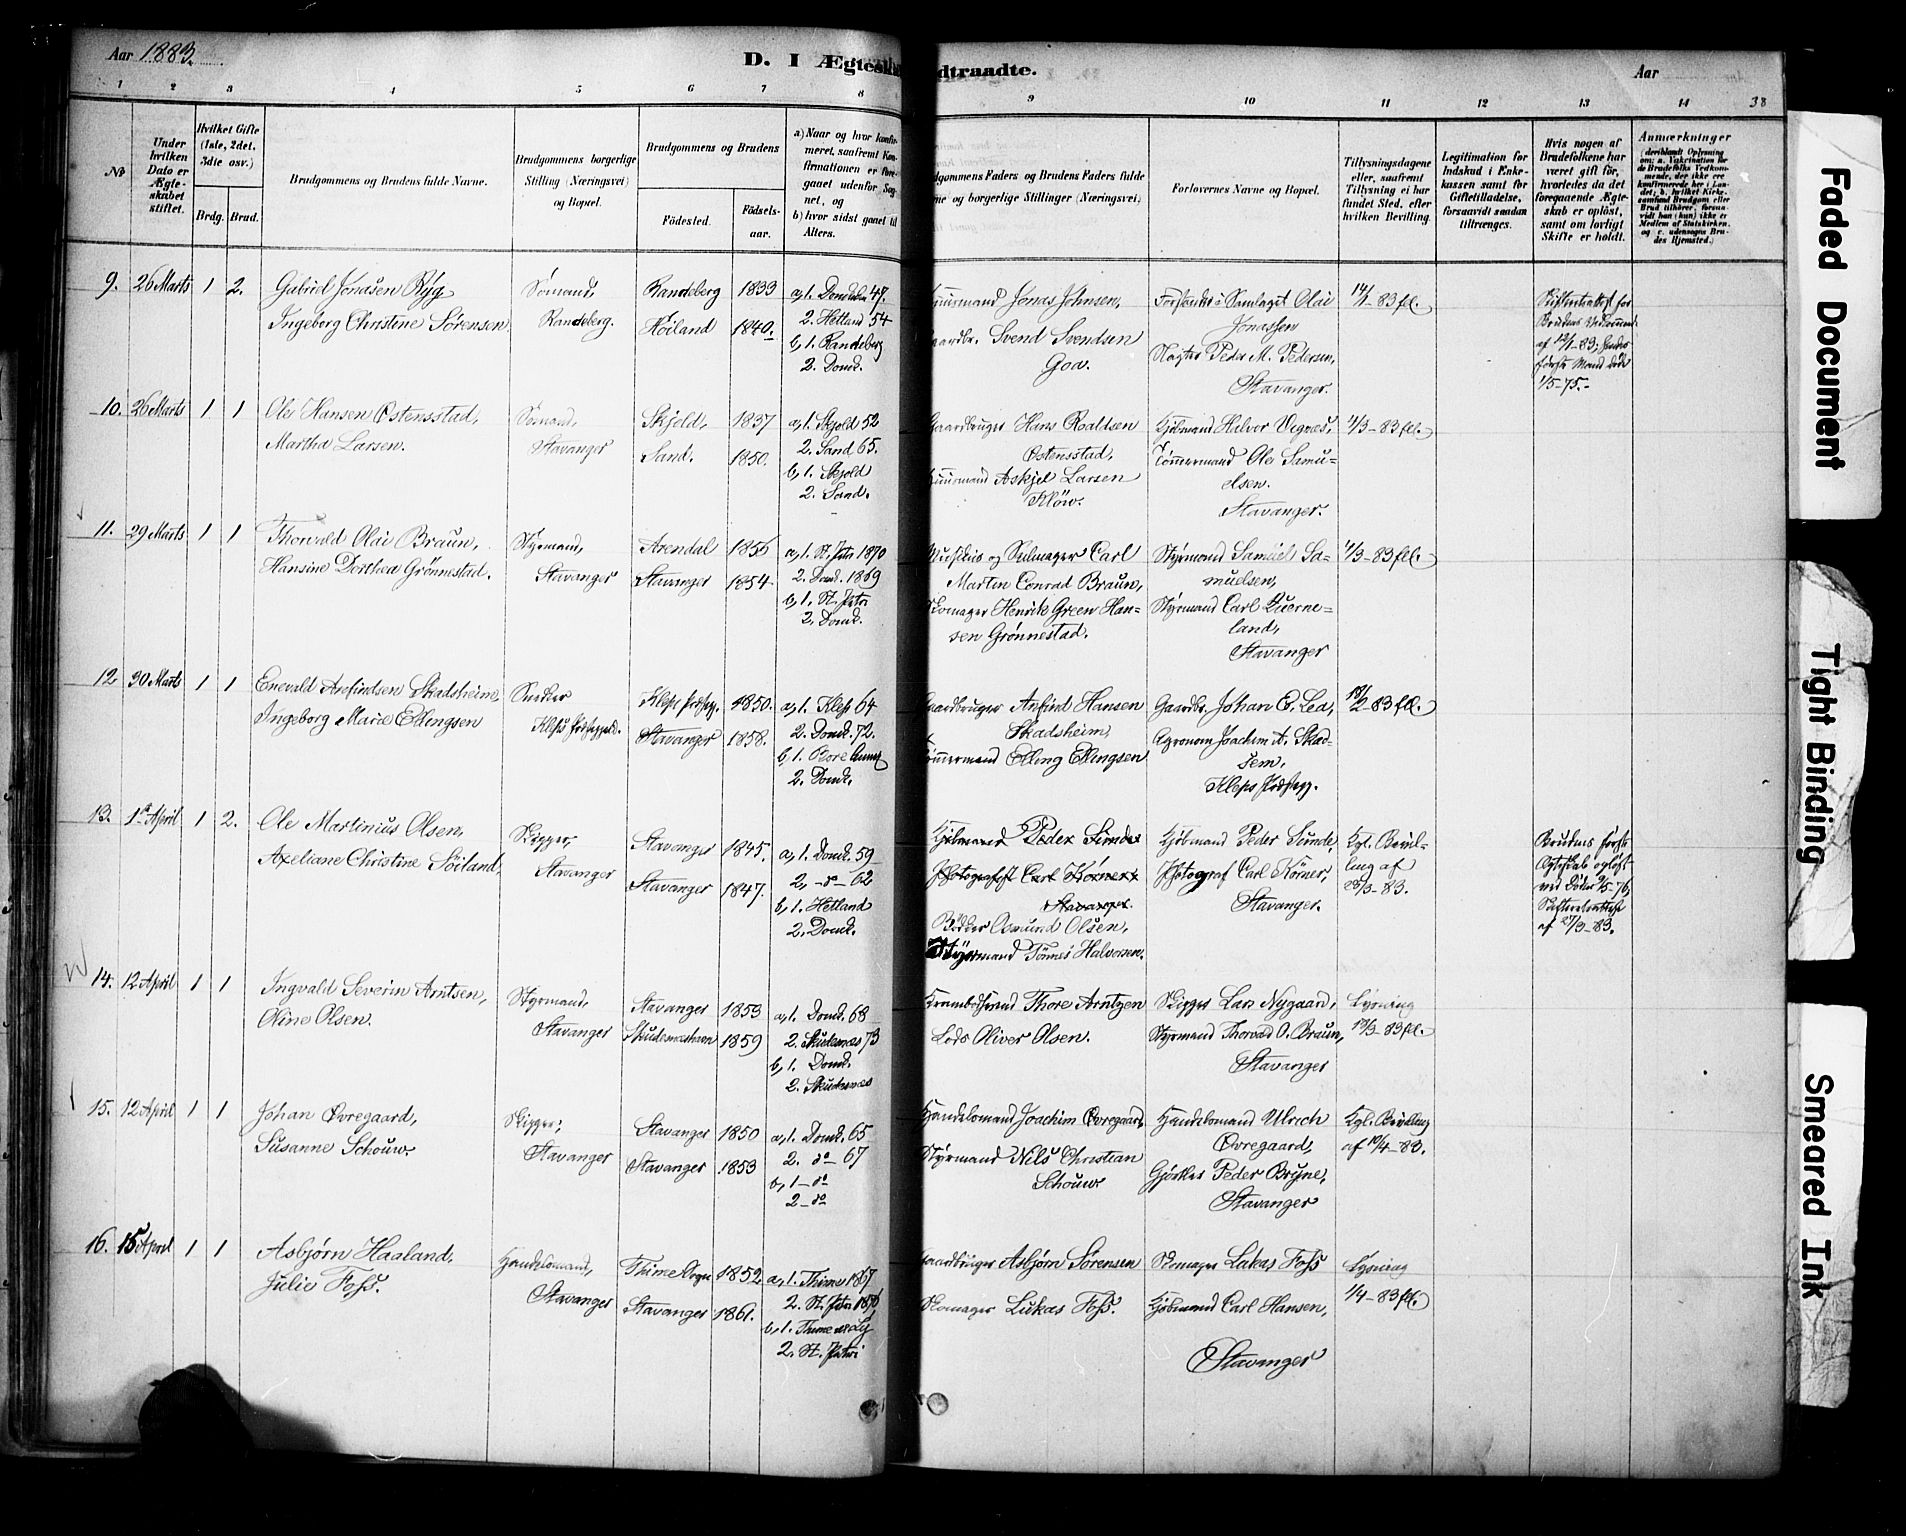 Aar 1883.
D. I Ægtesk
dtraadte.
Aar
1 2 3 4 5 6 7 8 9 10 11 12 13 14 38
No
Under hvilken Dato er Ægteskabet stiftet.
Hvilket Gifte (1ste, 2det, 3die osv.)
Brdg. Brud.
Brudgommens og Brudens fulde Navne.
Brudgommens borgerlige Stilling (Næringsvei) og Bopæl.
Brudgommens og Brudens
Fødested.
Fødselsaar.
a) Naar og hvor konfirmeret, saafremt Konfirmationen er foregaaet udenfor Sognet, og
b) hvor sidst gaaet til Alters.
dgommens Faders og Brudens Faders fulde
ne og borgerlige Stillinger (Næringsvei)
Forlovernes Navne og Bopæl.
Tillysningsdagene eller, saafremt Tillysning ei har fundet Sted, efter hvilken Bevilling.
Legitimation for Indskud i Enkekassen samt for Giftetilladelse, forsaavidt saadan tiltrænges.
Hvis nogen af Brudefolkene har været gift før, hvorledes da det foregaaende Ægteskab er opløst, samt om lovligt Skifte er holdt.
Anmærkninger
9. 26 Marts 1 2.
Gabriel Jonasen Ryg
Ingeborg Christine Sørensen
Sømand,
Randeberg.
Randeberg 1839
Høiland 1840.
a, 1. Domk 47.
2. Hetland 54
b, 1. Randeberg
2. Domk.
uusmand Jonas Johnsen,
aardbr. Svend Svendsen
Goa.
Forstander i Samlaget Olai
Jonassen
Slagter Peder M. Pedersen,
Stavanger.
14/1-83 fl.
Skifteattest for
Brudens Vedkommend.
af 12/1-83; hendes
første Mand død
1/5-75.-
10. 26 Marts 1 1
Ole Hansen Østensstad,
Martha Larsen.
Sømand,
Stavanger
Skjold, 1837
Sand. 1850.
a, 1. Skjold 52
2. Sand 65.
b, 1. Skjold
2. Sand.
Gaardbruger Hans Roaldsen
Østensstad,
Huusmand Askjel Larsen
Kløv.
Kjøbmand Helvor Vegnæs,
Tømmermand Ole Samu-
elsen.
Stavanger.
4/3-83 fl.
11. 29 Marts 1 1
Thorvald Olai Braun,
Hansine Dorthea Grønnestad.
Styrmand,
Stavanger
Arendal 1855
Stavanger 1854.
a, 1. St. Petri 1870
2. Domk. 1869
b, 1. St. Petri
2. Domk.
Musikus og Seilmager Carl
Martin Conrad Braun,
Skomager Henrik Green Han-
sen Grønnestad.
Styrmand Samuel Sa-
muelsen,
Styrmand Carl Querne-
land,
Stavanger
4/3-83 fl.
12 30 Marts 1 1
Enevald Arefindsen Skadsheim,
Ingeborg Marie Ellingsen
Snedker
Kleps Præstegjeld.
Kleps Præstegj. 1850.
Stavanger 1858.
a, 1. Klep 64
2. Domk. 72.
b, 1.
2. Domk.
Gaardbruger Anfind Hansen
Skadsheim,
Tømmermand Elling Ellingsen
Gaardbr. Johan E. Lea,
Agronom Joachim A. Skad-
sem,
Kleps Præstegj.
18/2-83 fl.
13. 1ste April 1 2.
Ole Martinius Olsen,
Axeliane Christine Søiland,
Skipper,
Stavanger
Stavanger 1845.
Stavanger 1847.
a, 1. Domk. 59
2, -do- 62
b, 1. Hetland
2. Domk.
Kjøbmand Peder Sunde
Photografist Carl Kørner,
Stavanger.
Bødker Osmund Olsen,
Styrmand Tønnes Halvorsen.
Kjøbmand Peder Sunde,
Photograf Carl Körner,
Stavanger.
Kgl. Bevil-
ling af
29/3-83.
Brudens første
Ægteskab opløst
ved Døden 9/5-76,
Skifteattest
af 27/3-83.
14. 12 April 1 1
Ingvald Severin Arntsen,
Oline Olsen.
Styrmand,
Stavanger
Stavanger 1853
Skudesnæshavn 1859
a, 1. Domk. 68
2. Skudesnæs 73
b, 1. Domk.
2. Skudesnæs
Thore Arntzen
Lods Oliver Olsen.
Skipper Lars Nygaard,
Styrmand Thorvald O. Braun,
Stavanger
Lysning
19/3-83 fl.
15. 12 April 1 1
Johan Øvregaard,
Susanne Schouw.
Skipper,
Stavanger
Stavanger 1850
Stavanger 1853
a, 1. Domk. 65
2. do- 67
b, 1-do
2-do
Handelsmand Joachim Øvregaard,
Styrmand Nils Christian
Schouw
Handelsmand Ulrich
Øvregaard,
Gjørtler Peder Bryne,
Stavanger
Kgl. Bevilling
af 10/4-83.
16. 15 April 1 1
Asbjørn Haaland,
Julie Foss.
Handelsmand,
Stavanger
Thime Sogn 1852
Stavanger 1861.
a, 1. Thime 1867
2. St. Petri 1876
b, 1. Thime
2. St. Petri
aardbruger Asbjørn Sørensen
Skomager Lukas Foss.
Skomager Lukas Foss
Kjøbmand Carl Hansen,
Stavanger
Lysning
1/4-83 fl.
Faded Document
Tight Binding
Smeared Ink